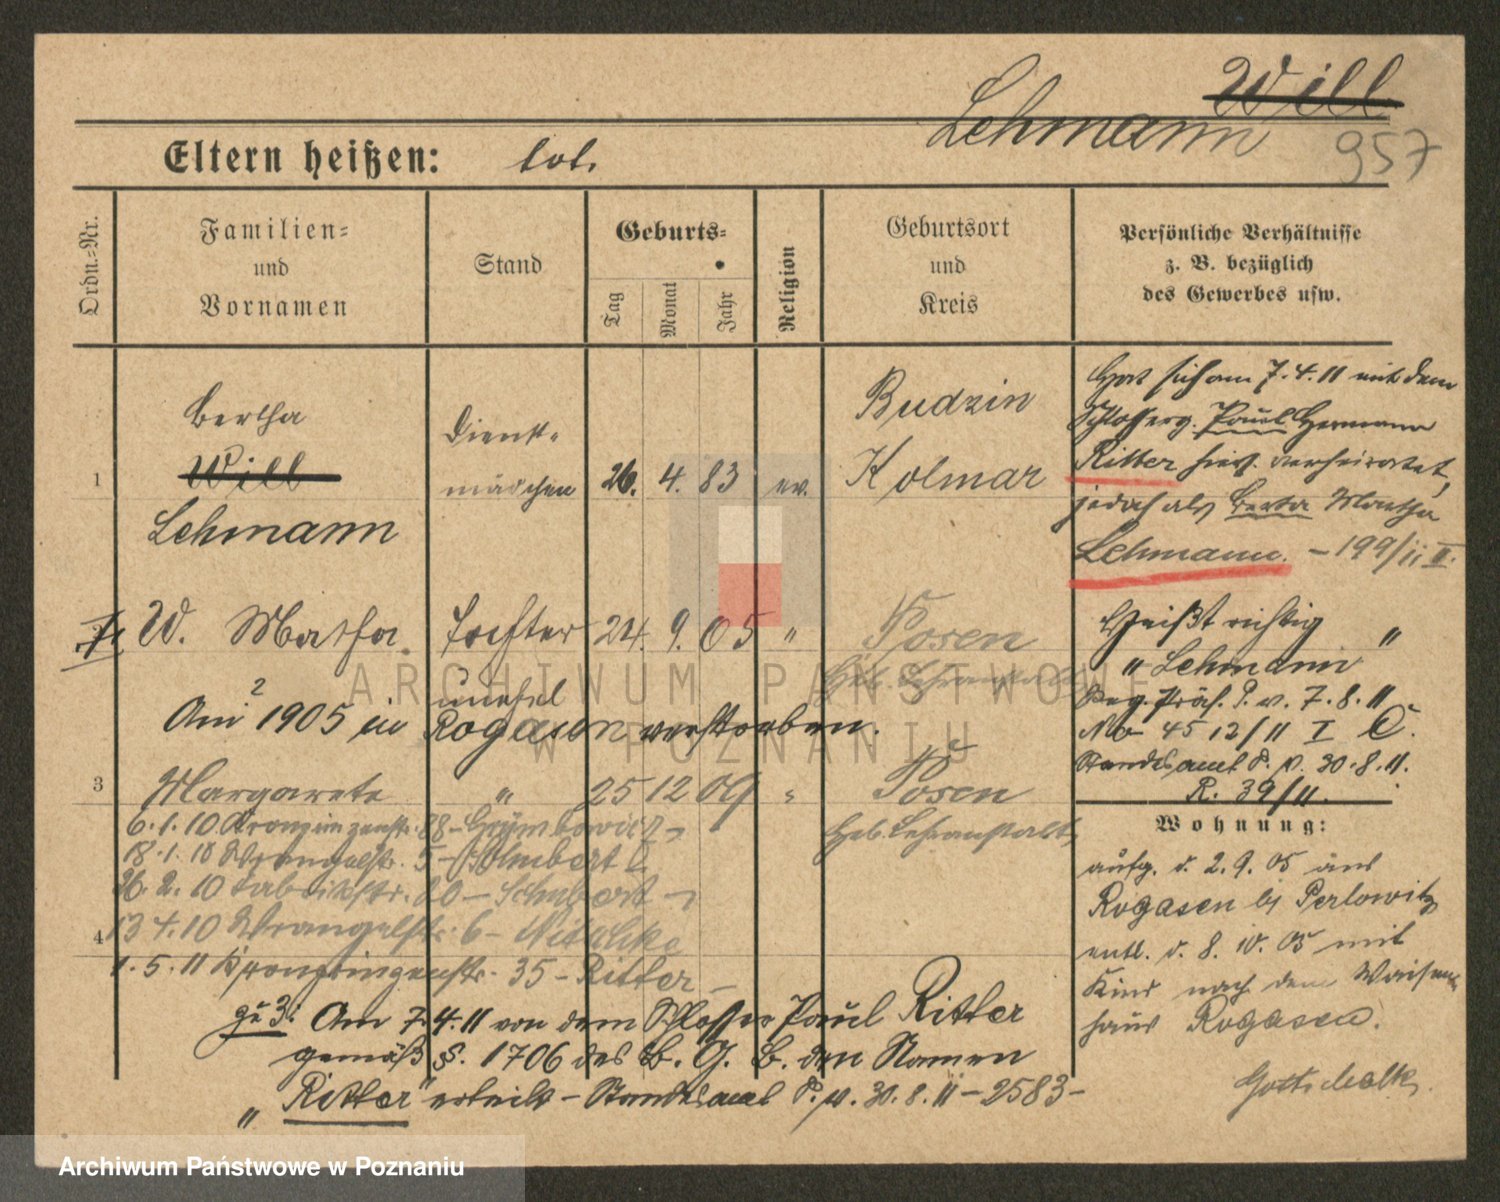 Will
Lehmann
957
Eltern heißen: tot.
Ordn.-Nr.
Familien-
und
Vornamen
Stand
Geburts-
Tag
Monat
Jahr
Religion
Geburtsort
und
Kreis
Persönliche Verhältnisse
z. B. bezüglich
des Gewerbes usw.
1
Bertha
Will
Lehmann
Dienst-
mädchen
26. 4. 83
ev.
Budzin
Kolmar
Hat sich am 7.4.11 mit dem
Schlosserg. Paul Hermann
Ritter hies. verheiratet,
jedoch als Berta Martha
Lehmann. – 199/11 II.
W. Martha.
Tochter
unehel
24. 9. 05
"
Posen
Heb. Lehranstalt
Am 2 1905 in Rogasen verstorben.
Heißt richtig
" Lehmann "
Reg. Präs. P. v. 7.8.11
No 4512/11 I C.
Standesamt P. v. 30.8.11.
R. 39/11.
3
Margarete
"
25 12 09
"
Posen
Heb. Lehranstalt
6.1.10 Kronprinzenstr. 88 –
18.1.10 Wrangelstr. 5 –
26.2.10 Fabrikstr. 20 – Schubert –
4
13 4.10 Wrangelstr. 6 – Nitschke
1.5.11 Kronprinzenstr. 35 – Ritter –
zu 3: Am 7.4.11 von dem Schlosser Paul Ritter
gemäß §. 1706 des B. G. B. den Namen
"Ritter" erteilt – Standesamt P. v. 30.8.11 – 2583 –
Wohnung:
aufg. d. 2.9.05 aus
Rogasen bj Perlowitz
entl. d. 8.10.05 mit
Kind nach dem Waisen-
haus Rogasen.
Gottschalk.
ARCHIWUM PAŃSTWOWE
W POZNANIU
Archiwum Państwowe w Poznaniu